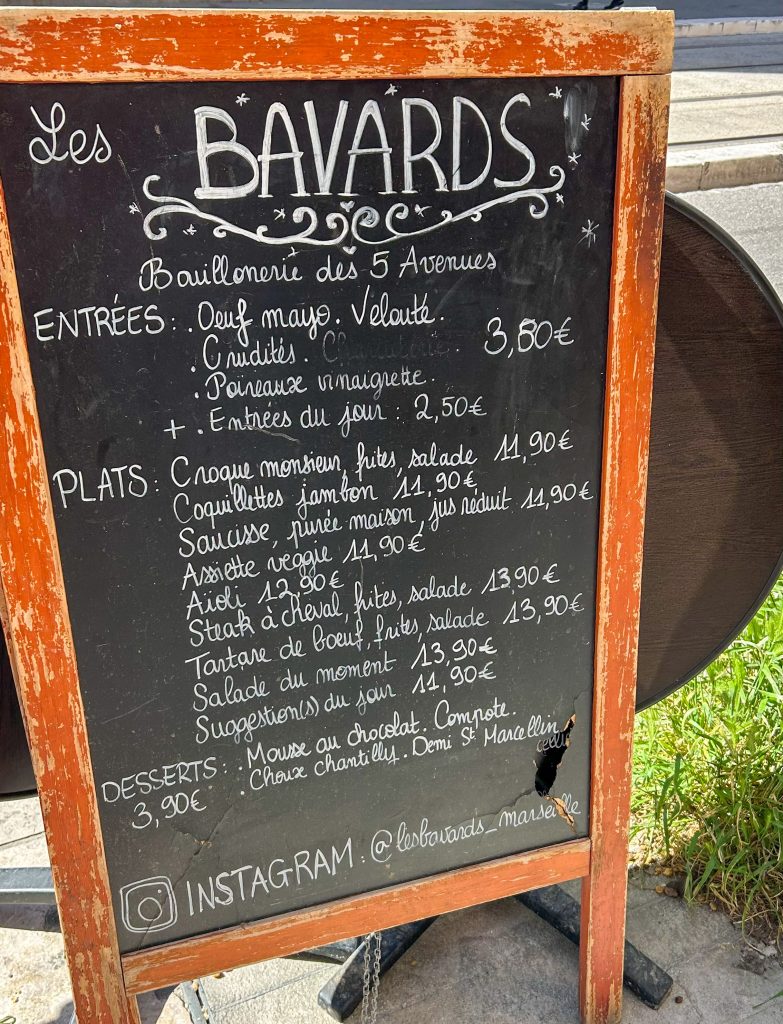 Les BAVARDS
Bouillonerie des 5 Avenues
ENTRÉES : . Oeuf mayo. Velouté.
. Crudités. Charcuterie. 3,80€
. Poireaux vinaigrette.
+ . Entrées du jour : 2,50€
PLATS : Croque monsieur, frites, salade 11,90€
Coquillettes jambon 11,90€
Saucisse, purée maison, jus réduit 11,90€
Assiette veggie 11,90€
Aïoli 12,90€
Steak à cheval, frites, salade 13,90€
Tartare de boeuf, frites, salade 13,90€
Salade du moment 13,90€
Suggestion(s) du jour 11,90€
DESSERTS : . Mousse au chocolat. Compote.
3,90€ . Choux chantilly. Demi St Marcellin
INSTAGRAM : @lesbavards_marseille